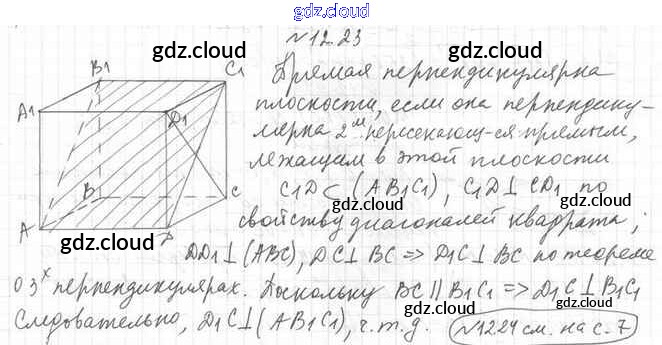 gdz.cloud
№12.23
gdz.cloud gdz.cloud
B1 C1
A1 D1
B C
A D
Прямая перпендикулярна
плоскости, если она перпендику-
лярна 2ум пересекающ-ся прямым,
лежащим в этой плоскости
C1D ⊂ (AB1C1), C1D ⊥ CD1 по
свойству диагоналей квадрата;
gdz.cloud gdz.cloud
DD1 ⊥ (ABC), DC ⊥ BC => D1C ⊥ BC по теореме
о 3х перпендикулярах. Поскольку BC || B1C1 => D1C ⊥ B1C1
Следовательно, D1C ⊥ (AB1C1), ч.т.д. №12.24 см. на с. 7
gdz.cloud gdz.cloud